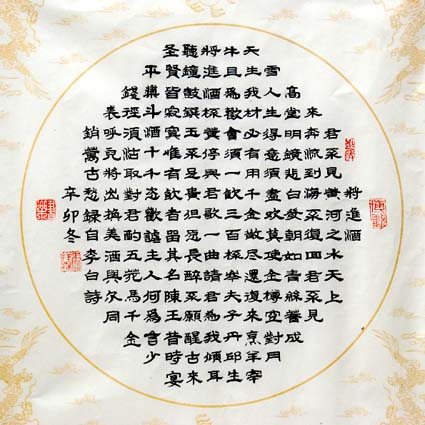 將進酒
君不見黃河之水天上
來奔流到海不復回君不見
高堂明鏡悲白髮朝如青絲暮成
雪人生得意須盡歡莫使金樽空對月
天生我材必有用千金散盡還復來烹羊宰
牛且為樂會須一飲三百杯岑夫子丹邱生
將進酒杯莫停與君歌一曲請君為我傾耳
聽鐘鼓饌玉不足貴但願長醉不願醒古來
聖賢皆寂寞惟有飲者留其名陳王昔時宴
平樂斗酒十千恣歡謔主人何為言少
錢徑須沽取對君酌五花馬千金
裘呼兒將出換美酒與爾同
銷萬古愁錄自李白詩
辛卯冬